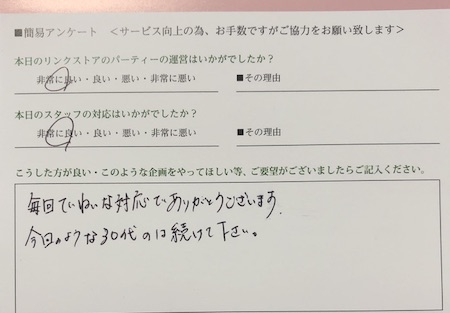 ■簡易アンケート ＜サービス向上の為、お手数ですがご協力をお願い致します＞
本日のリンクストアのパーティーの運営はいかがでしたか？
非常に良い・良い・悪い・非常に悪い ■その理由
本日のスタッフの対応はいかがでしたか？
非常に良い・良い・悪い・非常に悪い ■その理由
こうした方が良い・このような企画をやってほしい等、ご要望がございましたらご記入ください。
毎回ていねいな対応でありがとうございます.
今日のような30代のは続けて下さい。